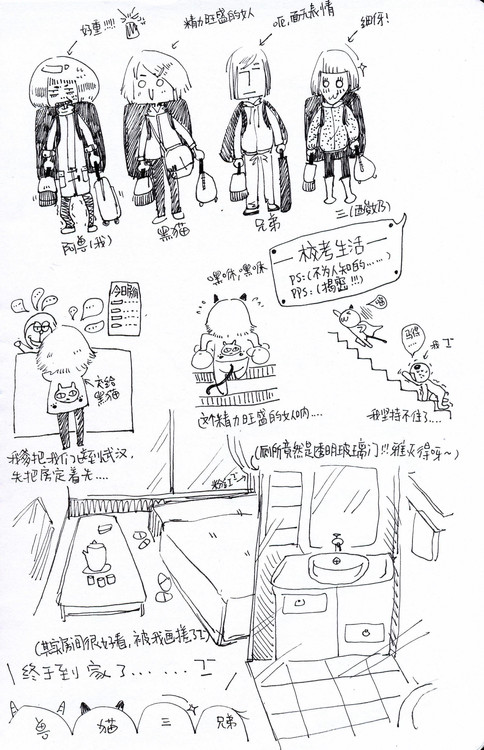 好重!!!!
精力旺盛的女人
呃,面无表情
细伢!
阿兽(我)
黑猫
兄弟
三(西数乃)
校考生活
PS:(不为人知的......)
PPS:(揭密!!!)
今日房价
大哈
黑猫
嘿咻,嘿咻
我爹把我们送到武汉,
先把房定着先....
这个精力旺盛的女人呐....
我坚持不住了....
(厕所竟然是透明玻璃门!!!谁灭得呀~)
(其实房间很好看,被我画搓了工)
终于到家了......工
兽
猫
三
兄弟